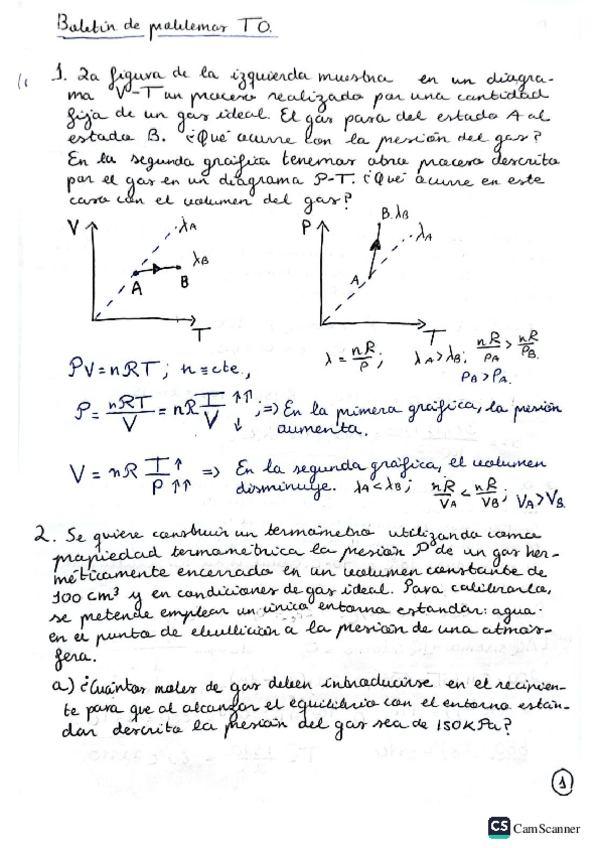 Boletín de problemas T0.
1. La figura de la izquierda muestra en un diagra-
ma V-T un proceso realizado por una cantidad
fija de un gas ideal. El gas pasa del estado A al
estado B. ¿Qué ocurre con la presión del gas?
En la segunda gráfica tenemos otro proceso descrito
por el gas en un diagrama P-T. ¿Qué ocurre en este
caso con el volumen del gas?
V λA λB A B T
P B λB λA A T
λ = nR/P ; λA > λB ; nR/PA > nR/PB
PB > PA.
PV = nRT ; n ≡ cte.,
P = nRT/V = nR T/V ↑↑ ↓ ; => En la primera gráfica, la presión
aumenta.
V = nR T/P ↑ ↑↑ => En la segunda gráfica, el volumen
disminuye. λA < λB ; nR/VA < nR/VB ; VA > VB
2. Se quiere construir un termómetro utilizando como
propiedad termométrica la presión P de un gas her-
méticamente encerrado en un volumen constante de
100 cm³ y en condiciones de gas ideal. Para calibrarlo,
se pretende emplear un único entorno estandar: agua
en el punto de ebullición a la presión de una atmós-
fera.
a) ¿Cuántos moles de gas deben introducirse en el recipien-
te para que al alcanzar el equilibrio con el entorno están-
dar descrito la presión del gas sea de 150 kPa?
1
CS CamScanner